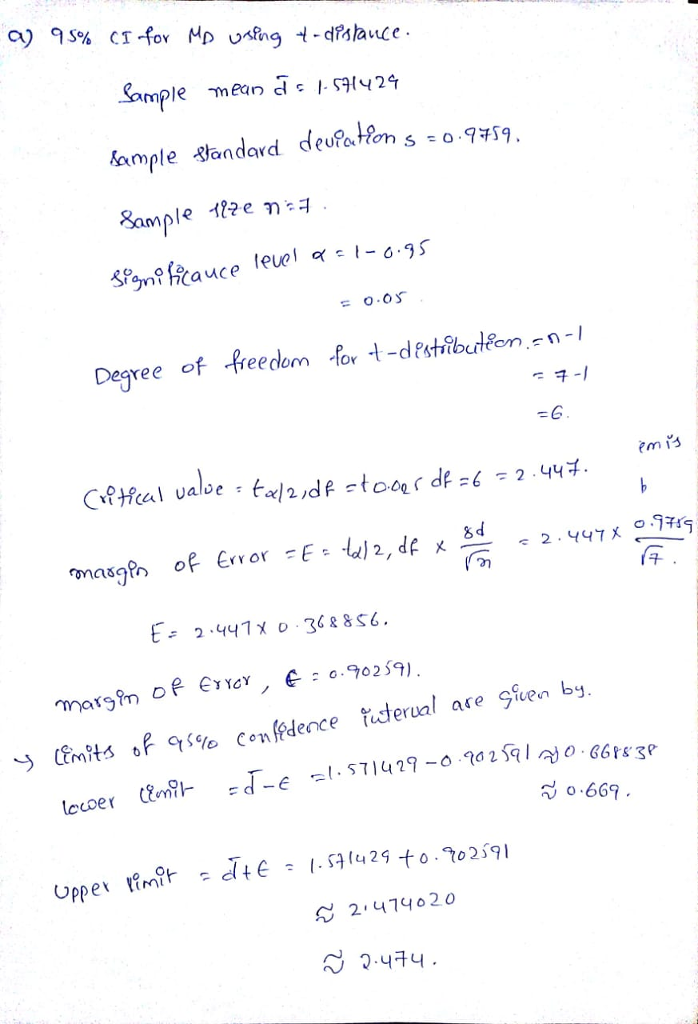 a) 95% CI for MD using t-distance.
Sample mean d̄ = 1.571429
sample standard deviation s = 0.9759.
Sample size n=7.
significance level α = 1-0.95
= 0.05
Degree of freedom for t-distribution = n-1
= 7-1
=6.
em is
b
Critical value = tα/2,df = t0.025 df =6 = 2.447.
margin of Error = E = tα/2, df × sd/√n = 2.447 × 0.9759/√7.
E= 2.447 × 0.368856.
margin of Error, E = 0.902591.
→ limits of 95% confidence interval are given by.
lower limit = d̄-E = 1.571429-0.902591 ≈ 0.668838
≈ 0.669.
Upper limit = d̄+E = 1.571429 +0.902591
≈ 2.474020
≈ 2.474.